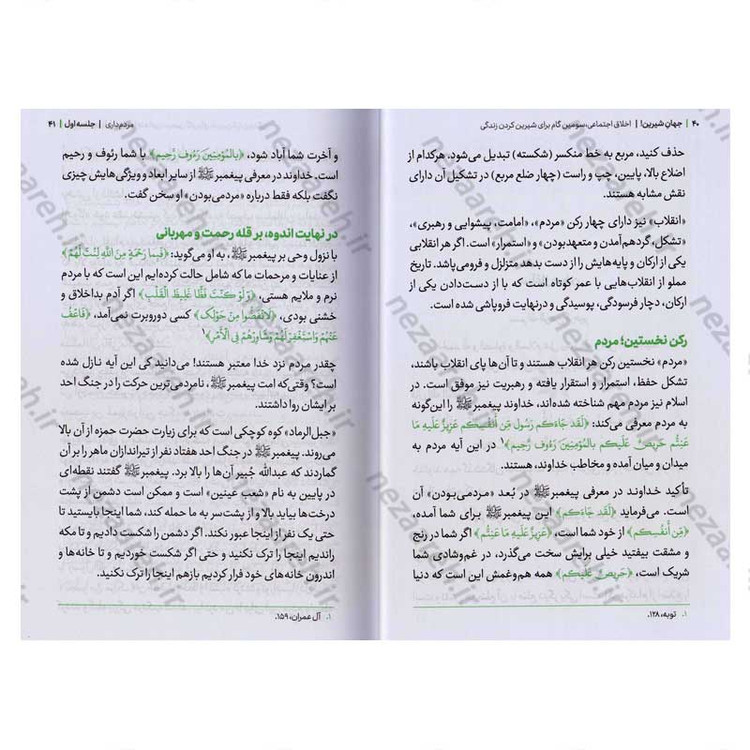 ۴۰ | جهانِ شیرین! | اخلاق اجتماعی، سومین گام برای شیرین کردن زندگی
حذف کنید، مربع به خط منکسر (شکسته) تبدیل می‌شود. هرکدام از
اضلاع بالا، پایین، چپ و راست (چهار ضلع مربع) در تشکیل آن دارای
نقش مشابه هستند.
«انقلاب» نیز دارای چهار رکن «مردم»، «امامت، پیشوایی و رهبری»،
«تشکل، گردهم‌آمدن و متعهدبودن» و «استمرار» است. اگر هر انقلابی
یکی از ارکان و پایه‌هایش را از دست بدهد متزلزل و فرومی‌پاشد. تاریخ
مملو از انقلاب‌هایی با عمر کوتاه است که با از دست‌دادن یکی از
ارکان، دچار فرسودگی، پوسیدگی و درنهایت فروپاشی شده است.
رکن نخستین؛ مردم
«مردم» نخستین رکن هر انقلاب هستند و تا آن‌ها پای انقلاب باشند،
تشکل حفظ، استمرار و استقرار یافته و رهبریت نیز موفق است. در
اسلام نیز مردم مهم شناخته شده‌اند، خداوند پیغمبر ﷺ را این‌گونه
به مردم معرفی می‌کند: ﴿لَقَد جَاءَكُم رَسُولٌ مِّن أَنفُسِكُم عَزِيزٌ عَلَيهِ مَا
عَنِتُّم حَرِيصٌ عَلَيكُم بِالمُؤمِنِينَ رَءُوفٌ رَّحِيم﴾۱ در این آیه مردم به
میدان و میان آمده و مخاطب خداوند، هستند.
تأکید خداوند در معرفی پیغمبر ﷺ در بُعد «مردمی‌بودن» آن
است. می‌فرماید ﴿لَقَد جَاءَكُم﴾ این پیغمبر ﷺ برای شما آمده،
﴿مِّن أَنفُسِكُم﴾ از خود شما است، ﴿عَزِيزٌ عَلَيهِ مَا عَنِتُّم﴾ اگر شما در رنج
و مشقت بیفتید خیلی برایش سخت می‌گذرد، در غم‌وشادی شما
شریک است، ﴿حَرِيصٌ عَلَيكُم﴾ همه هم‌وغمش این است که دنیا
۱. توبه، ۱۲۸.
مردم‌داری | جلسه اول | ۴۱
و آخرت شما آباد شود، ﴿بِالمُؤمِنِينَ رَءُوفٌ رَّحِيم﴾ با شما رئوف و رحیم
است. خداوند در معرفی پیغمبر ﷺ از سایر ابعاد و ویژگی‌هایش چیزی
نگفت بلکه فقط درباره «مردمی‌بودن» او سخن گفت.
در نهایت اندوه، بر قله رحمت و مهربانی
با نزول وحی بر پیغمبر ﷺ، به او می‌گوید: ﴿فَبِمَا رَحْمَةٍ مِنَ اللَّهِ لِنْتَ لَهُمْ﴾
از عنایات و مرحمات ما که شامل حالت کرده‌ایم این است که با مردم
نرم و ملایم هستی، ﴿وَلَوْ كُنْتَ فَظًّا غَلِيظَ الْقَلْبِ﴾ اگر آدم بداخلاق و
خشنی بودی، ﴿لَانْفَضُّوا مِنْ حَوْلِكَ﴾ کسی دوروبرت نمی‌آمد، ﴿فَاعْفُ
عَنْهُمْ وَاسْتَغْفِرْ لَهُمْ وَشَاوِرْهُمْ فِي الْأَمْرِ﴾۱
چقدر مردم نزد خدا معتبر هستند! می‌دانید کی این آیه نازل شده
است؟ وقتی‌که امت پیغمبر ﷺ، نامردمی‌ترین حرکت را در جنگ احد
بر ایشان روا داشتند.
«جبل‌الرماد» کوه کوچکی است که برای زیارت حضرت حمزه از آن بالا
می‌روند. پیغمبر ﷺ در جنگ احد هفتاد نفر از تیراندازان ماهر را بر آن
گماردند که عبدالله جُبیر آن‌ها را بالا برد. پیغمبر ﷺ گفتند نقطه‌ای
در پایین به نام «شعب عینین» است و ممکن است دشمن از پشت
درخت‌ها بیاید بالا و از پشت‌سر به ما حمله کند، شما اینجا بایستید تا
حتی یک نفر از اینجا عبور نکند. اگر دشمن را شکست دادیم و تا مکه
راندیم اینجا را ترک نکنید و حتی اگر شکست خوردیم و تا خانه‌ها و
اندرون خانه‌های خود فرار کردیم بازهم اینجا را ترک نکنید.
۱. آل عمران، ۱۵۹.
nezaareh.ir